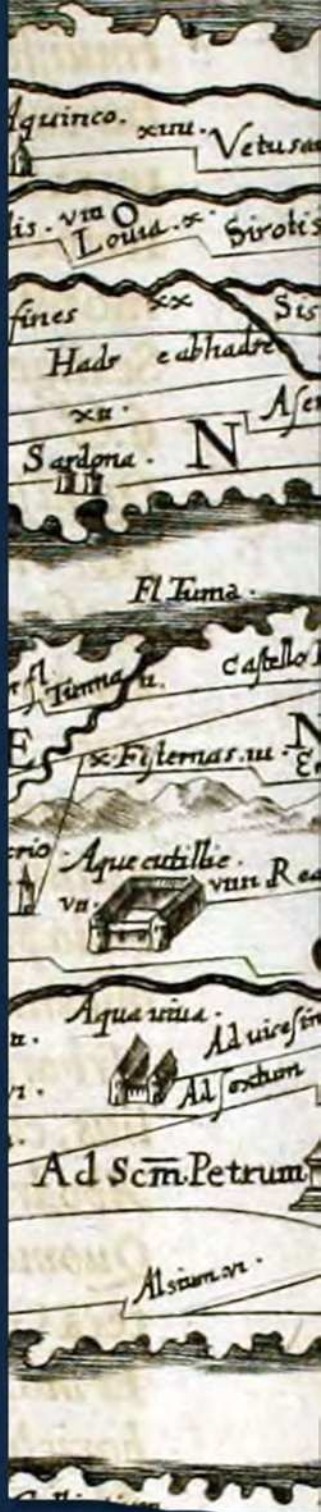 Aquinco. xiiii. Vetusa
lis. viii Louia. x. Sirotis
fines xx Sis
Hadr e abhadre
xii. Aser
Sardona. N
Fl Tuma.
fl. Tumna ii. Castello
E x. Fisternas. iii. N
erio. Aque cutillie. viiii. Rea
vii.
Aqua viua. Ad vicesim
ii.
vi. Ad sextum
Ad Scm̄. Petrum
Alsium. vi.